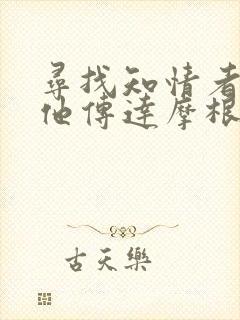 尋找知情者
他傳達摩根
古天樂